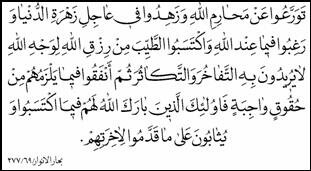 تَوَرَّعُوا عَنْ مَحَارِمِ اللهِ وَزَهِدُوا فِي عَاجِلِ زَهْرَةِ الدُّنْيَا وَ
رَغِبُوا فِيمَا عِنْدَ اللهِ وَاكْتَسَبُوا الطَّيِّبَ مِنْ رِزْقِ اللهِ لِوَجْهِ اللهِ
لَايُرِيدُونَ بِهِ التَّفَاخُرَ وَالتَّكَاثُرَ ثُمَّ أَنْفَقُوا فِيمَا يَلْزَمُهُمْ مِنْ
حُقُوقٍ وَاجِبَةٍ فَاُولٰئِكَ الَّذِينَ بَارَكَ اللهُ لَهُمْ فِيمَا اكْتَسَبُوا وَ
يُثَابُونَ عَلَىٰ مَا قَدَّمُوا لِاٰخِرَتِهِمْ.
بحار الانوار/٦٩/ ٢٧٧